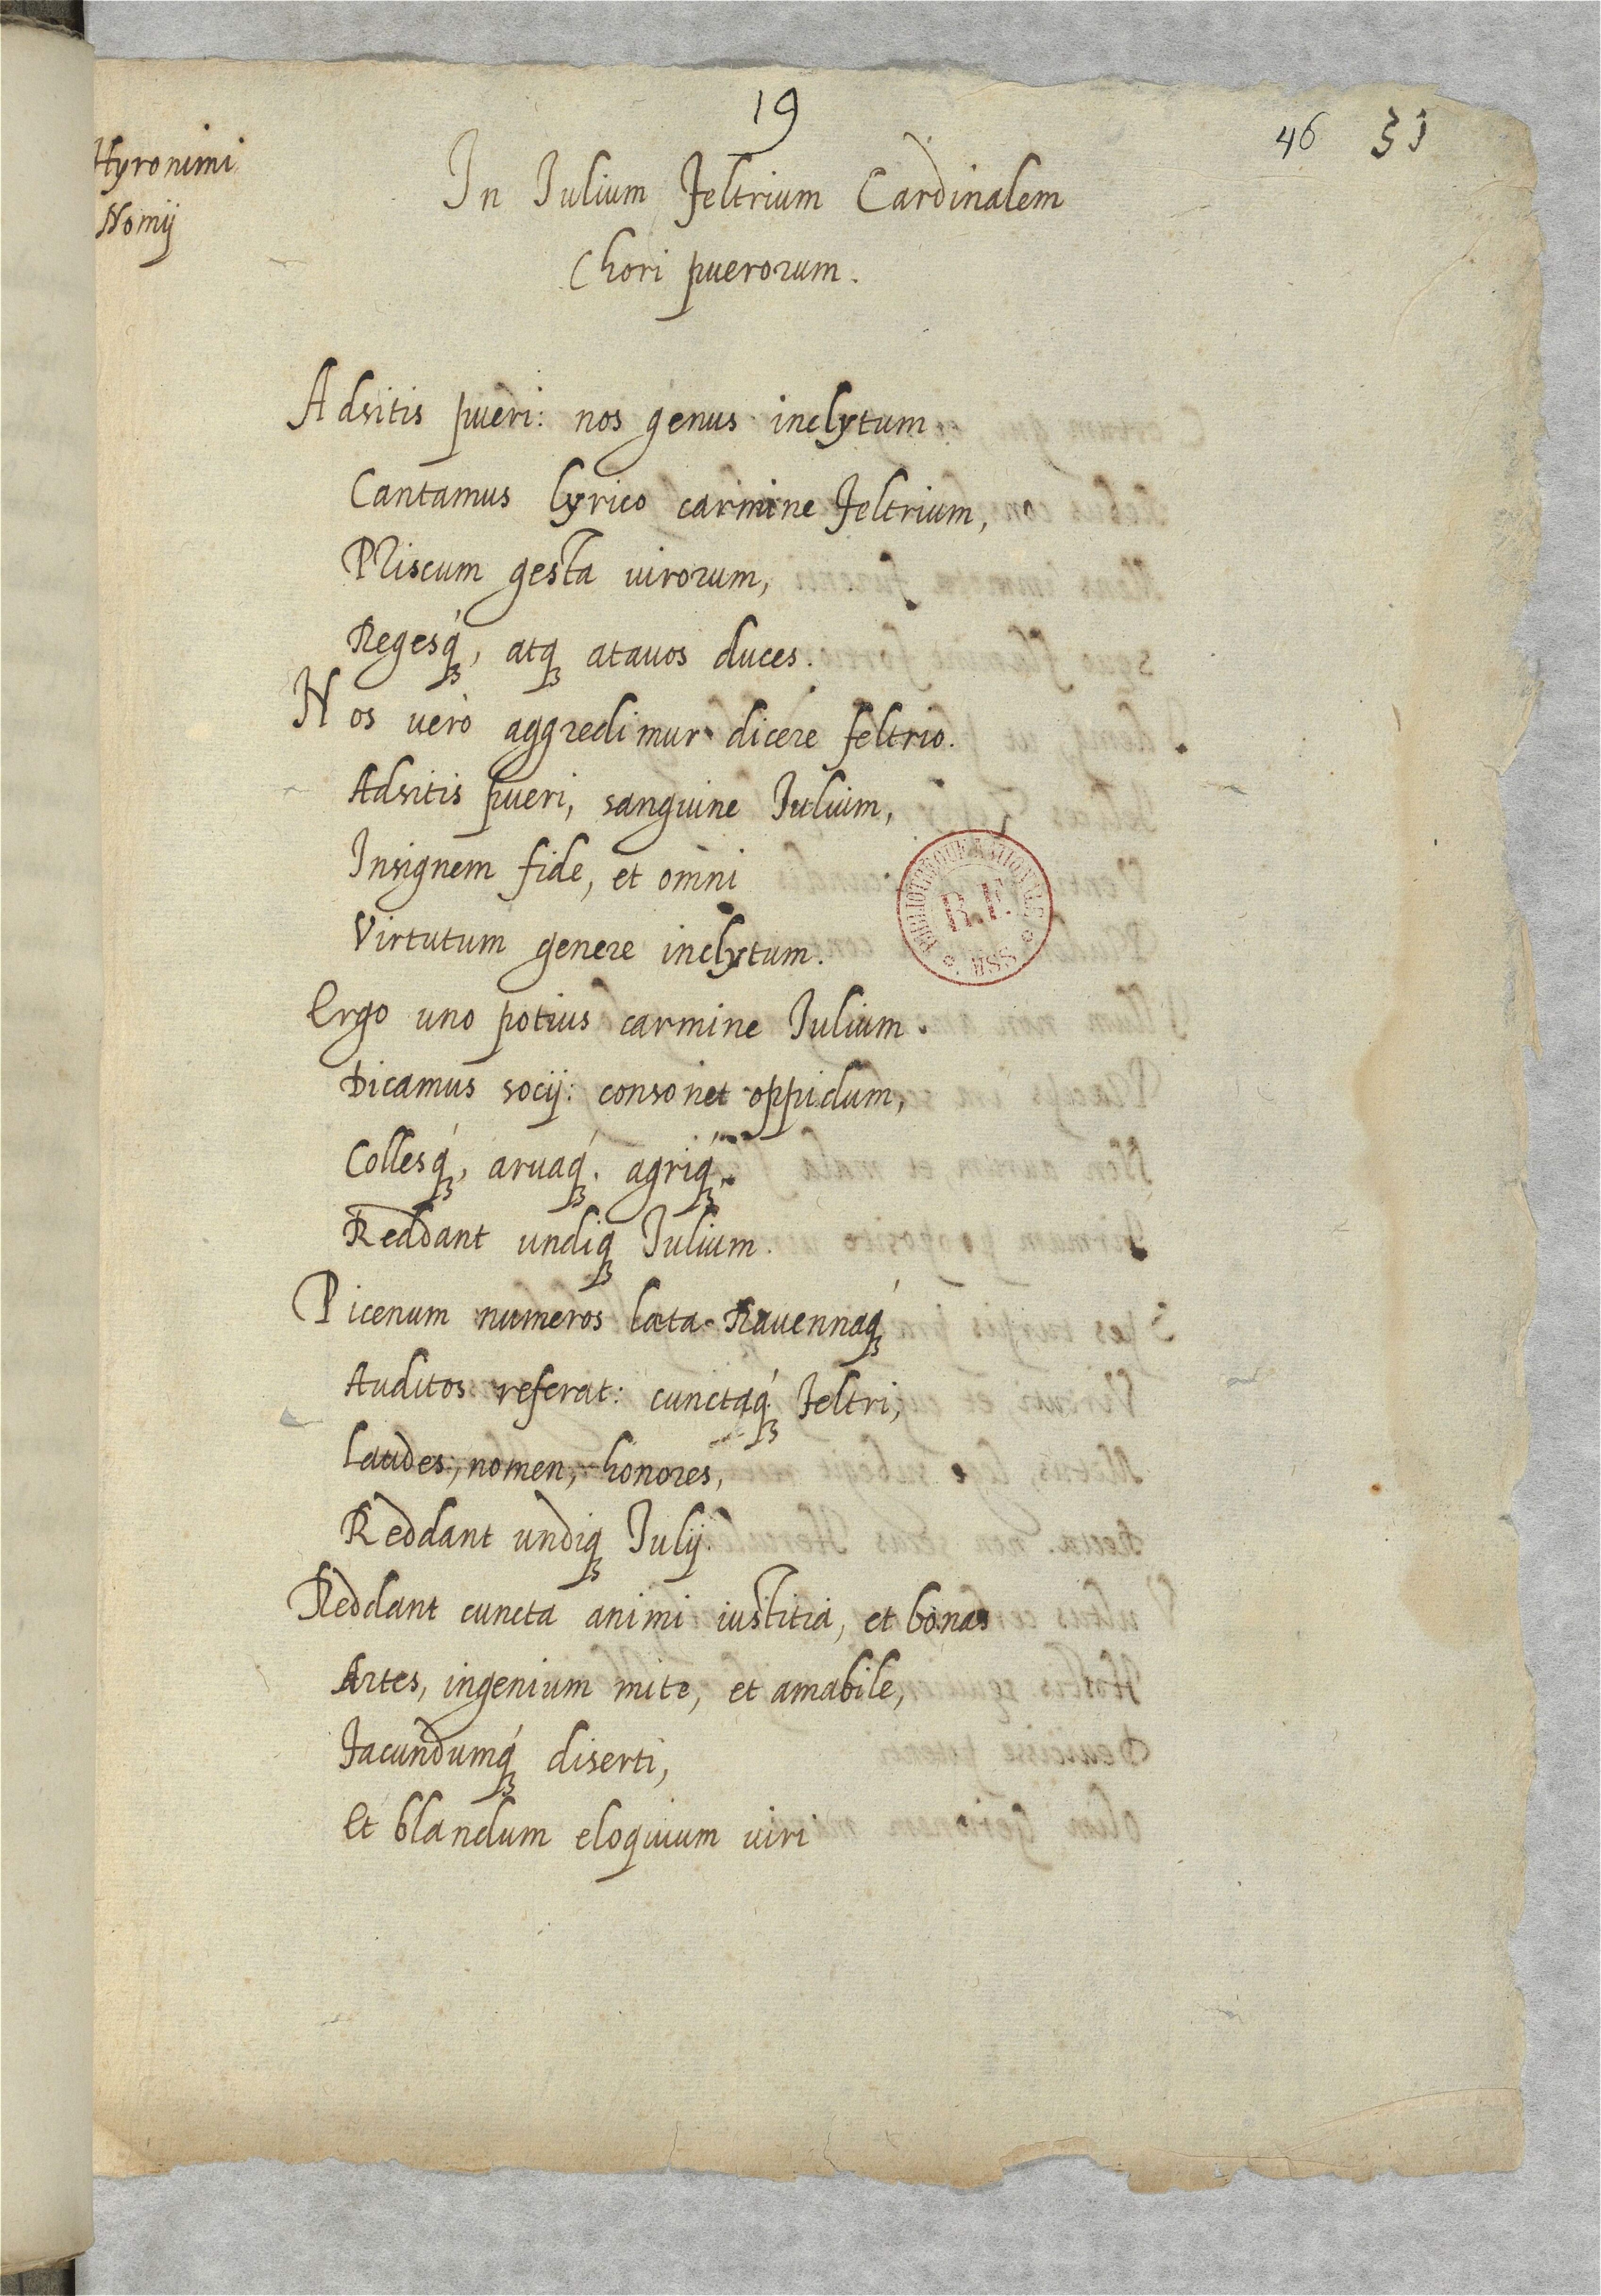 19
46 51
Hyronimi
Nomij
In Iulium Feltrium Cardinalem
Chori puerorum.
Adsitis pueri: nos genus inclytum
Cantamus lyrico carmine Feltrium,
Priscum gesta uirorum,
Regesq́ꝫ, atqꝫ atauos duces.
Nos uerò aggredimur dicere feltrio.
Adsitis pueri, sanguine Iulium,
Insignem fide, et omni
Virtutum genere inclytum.
Ergo uno potius carmine Iulium.
Dicamus socij: consonet oppidum,
Collesq́ꝫ, aruaq́ꝫ. agriq́ꝫ.
Reddant undiqꝫ Iulium.
Picenum numeros lata Rauennaq́ꝫ
Auditos referat: cunctaq́ꝫ Feltri,
Laudes, nomen, honores,
Reddant undiqꝫ Iulij.
Reddant cuncta animi iustitiā, et bonas
Artes, ingenium mite, et amabile,
Facundumq́ꝫ diserti,
Et blandum eloquium uiri
BIBLIOTHEQUE NATIONALE
R.F.
MSS